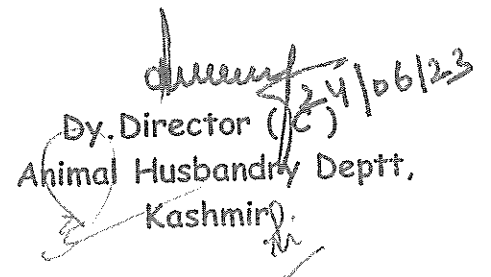 24/06/23
Dy.Director ( C )
Animal Husbandry Deptt,
Kashmir